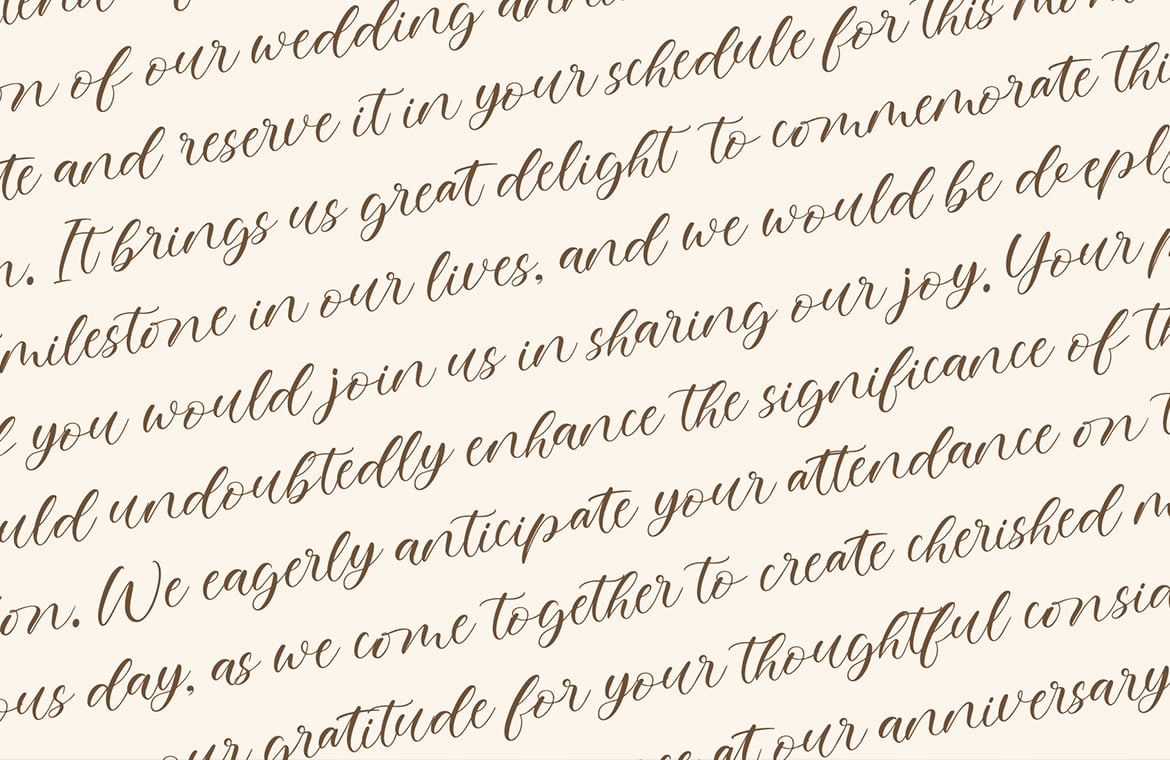 on of our wedding anni
te and reserve it in your schedule for this mom
n. It brings us great delight to commemorate thi
milestone in our lives, and we would be deeply
you would join us in sharing our joy. Your p
ould undoubtedly enhance the significance of th
ion. We eagerly anticipate your attendance on t
ous day, as we come together to create cherished m
our gratitude for your thoughtful consid
at our anniversary